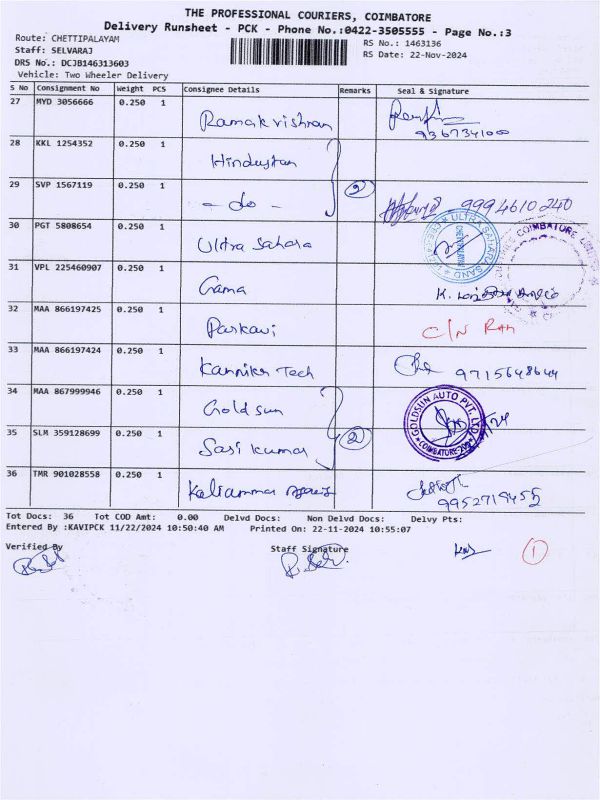 THE PROFESSIONAL COURIERS, COIMBATORE
Delivery Runsheet - PCK - Phone No.:0422-3505555 - Page No.:3
Route: CHETTIPALAYAM
Staff: SELVARAJ
DRS No.: DCJB146313603
Vehicle: Two Wheeler Delivery
RS No.: 1463136
RS Date: 22-Nov-2024
S No Consignment No Weight PCS Consignee Details Remarks Seal & Signature
27 MYD 3056666 0.250 1 Ramakrishnan 9367341000
28 KKL 1254352 0.250 1 Hindustan
29 SVP 1567119 0.250 1 - do - 2 9994610240
30 PGT 5808654 0.250 1 Ultra Sahara
31 VPL 225460907 0.250 1 Gama K.
32 MAA 866197425 0.250 1 Parkavi C/N
33 MAA 866197424 0.250 1 Kannika Tech 9715648644
34 MAA 867999946 0.250 1 Gold sun GOLDSUN AUTO PVT. LTD. COIMBATORE
35 SLM 359128699 0.250 1 Sasi kumar 2
36 TMR 901028558 0.250 1 Kaliammal
Tot Docs: 36 Tot COD Amt: 0.00 Delvd Docs: Non Delvd Docs: Delvy Pts:
Entered By :KAVIPCK 11/22/2024 10:50:40 AM Printed On: 22-11-2024 10:55:07
Verified By Staff Signature
1